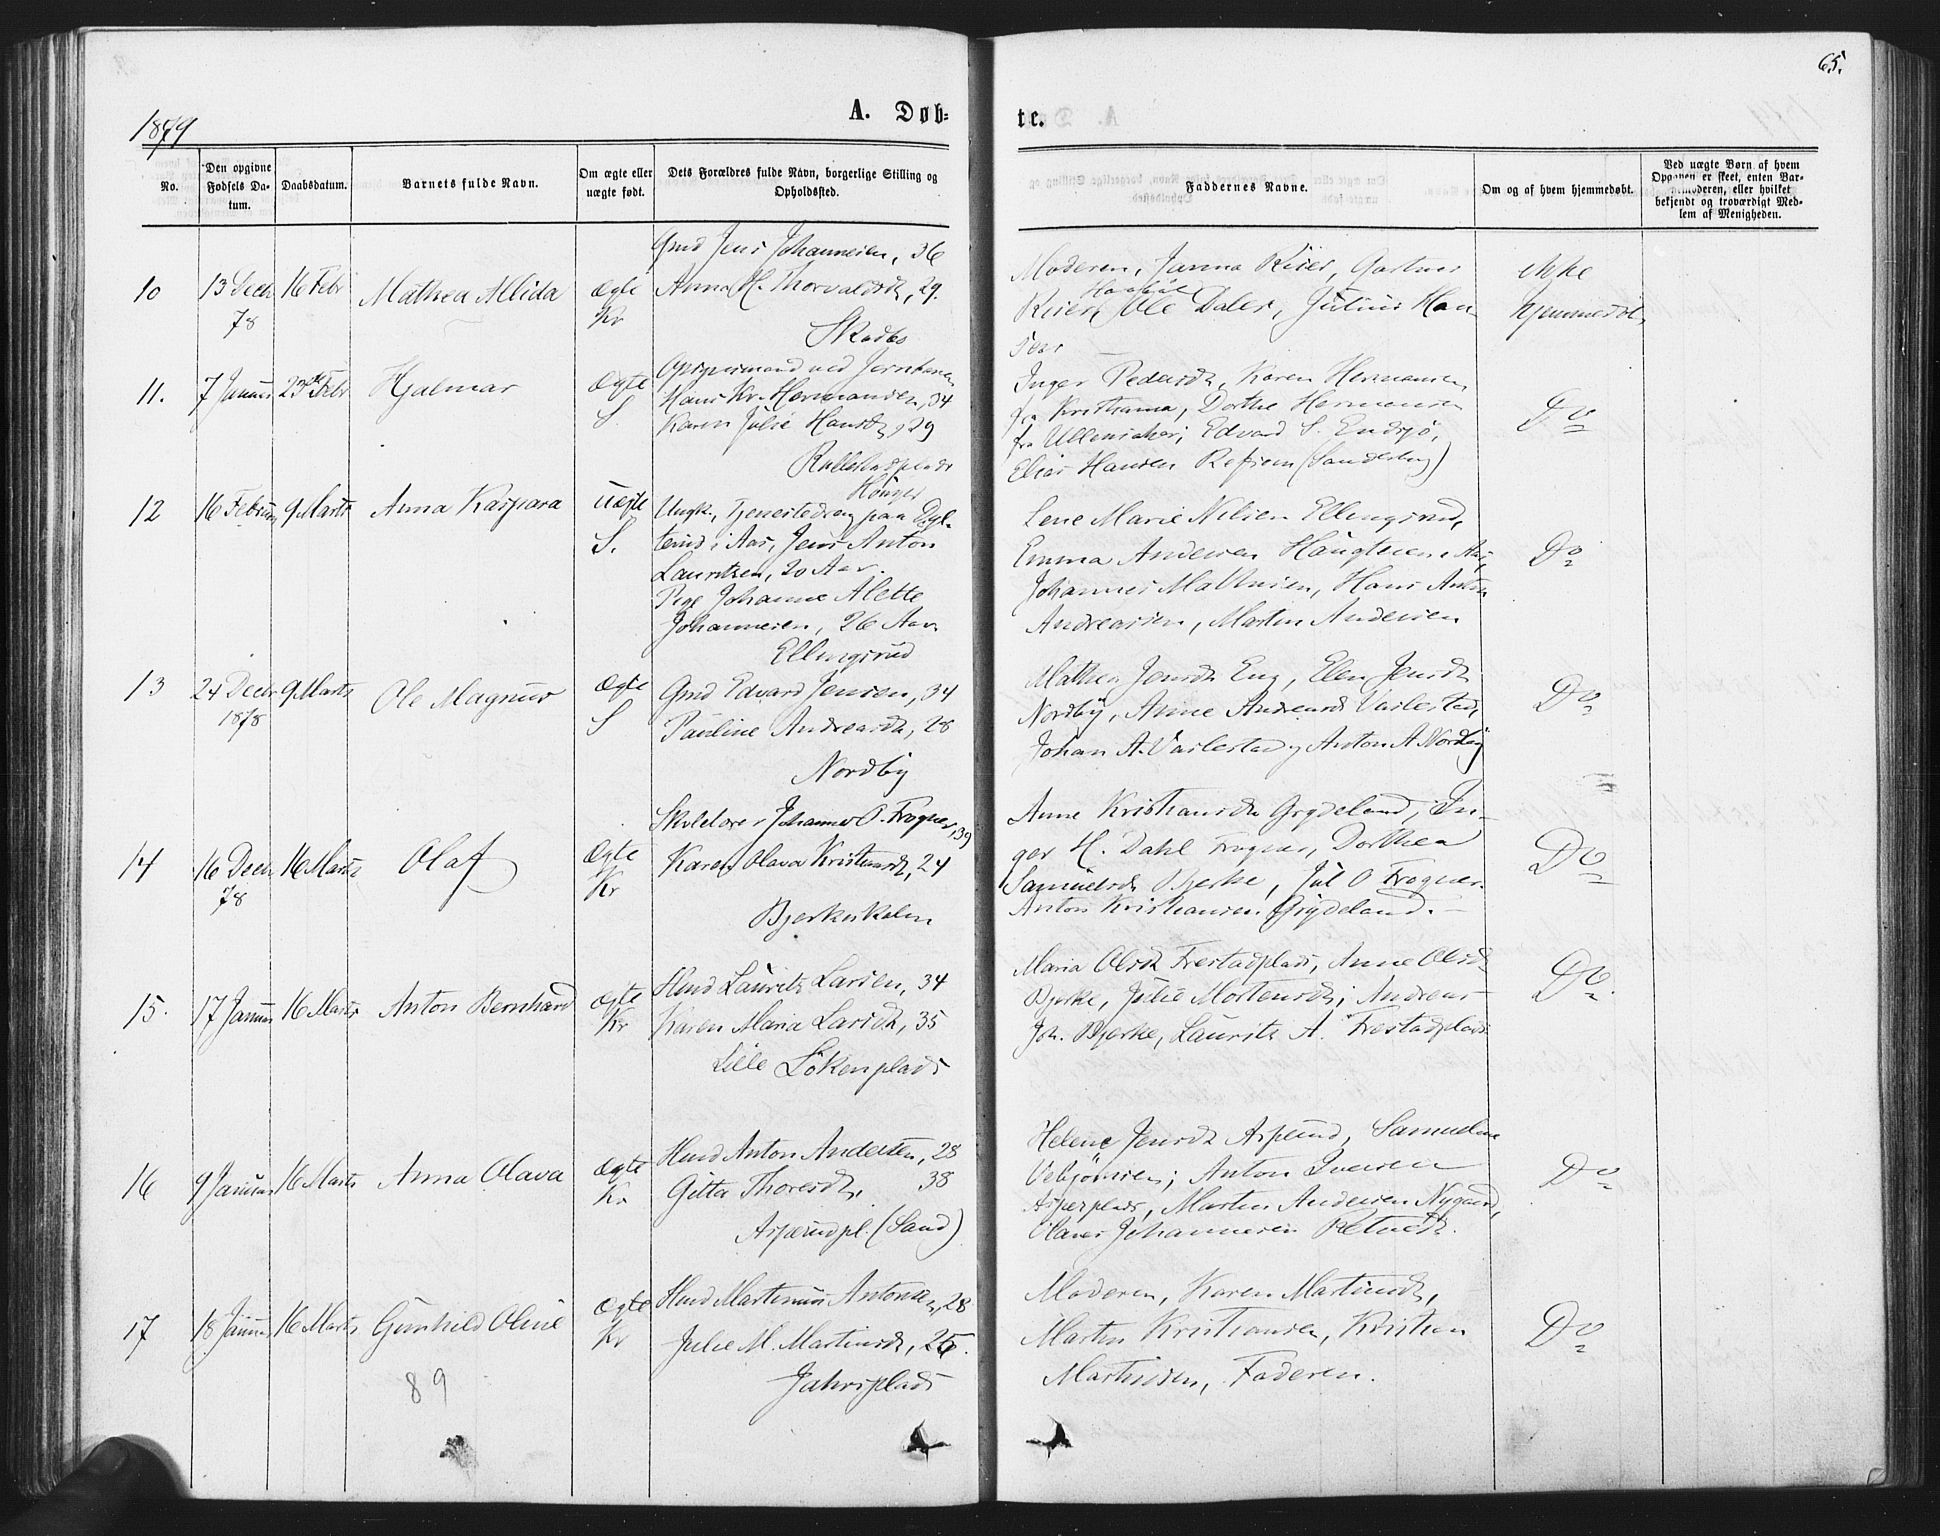 65.
1879
A. Døb-
te.
No.
Den opgivne Fødsels Da-tum.
Daabsdatum.
Barnets fulde Navn.
Om ægte eller uægte født.
Dets Forældres fulde Navn, borgerlige Stilling og Opholdssted.
Faddernes Navne.
Om og af hvem hjemmedøbt.
Ved uægte Børn af hvem Opgaven er skeet, enten Bar-nemoderen, eller hvilket bekjendt og troværdigt Med-lem af Menigheden.
Gmd Jens Johannesen, 36
10 13 Decb 16 Febr Mathea Allida ægte Anna H. Thorvaldsd., 29.
78 Kr
Skadbo
Moderen, Janna Riser,
Riser, Ole Daler, Julius Han-
sen
ikke
hjemmedøbt
11. 7 Januar 23de Febr Hjalmar ægte
Hans Kr. Hermansen, 34
S. Karen Julie Hansd., 29
Inger Pedersd., Karen Hermansen
fra Kristiania, Dorthe Hermansen
fra Ullensaker, Edvard S. Endsjø,
Elias Hansen Refsum (Sanderby)
Do
12 16 Februar 9 Marts Anna Kaspara uægte
Ungk., Tjenestedreng paa
S. i Aas, Jens Anton
Lauritsen, 20 Aar.
Pige Johanne Alette
Johannesen, 26 Aar
Ellingsrud
Lene Marie Nilsen Ellingsrud,
Emma Andersen Haugteien i Aas,
Johannes Mathisen, Hans Anton
Andreassen, Martin Andersen
Do
13 24 Decbr 9 Marts Ole Magnus ægte Gmd Edvard Jensen, 34
1878 S Pauline Andreasd., 28
Nordby
Mathea Jensd. Eng, Elen Jensd.
Nordby, Anne Andreasd. Varlestad,
Johan A. Varlestad, Anton A. Nordby
Do
Skolelærer Johannes O. Frogner, 39
14 16 Decbr 16 Marts Olaf ægte Karen Olava Kristiansd., 24
78 Kr
Bjerkeskolen
Anne Kristiansd. Grydeland, In-
ger H. Dahl Frogner, Dorthea
Samuelsd. Bjerke, Jul O Frogner.
Anton Kristiansen Grydeland.
Do
Hmd Laurits Larsen, 34
15. 17 Januar 16 Marts Anton Bernhard ægte
Kr Karen Maria Larsd., 35
Lille Lökenplads
Maria Olsd. Frestadplads, Anne Olsd.
Bjerke, Julie Mortensd.; Andreas
Joh. Bjerke, Laurits A. Frestadplads
Do
Hmd Anton Andersen, 28
16 9 Januar 16 Marts Anna Olava ægte
Kr. Gitta Thoresd., 38
Asperudpl. (Sand)
Helene Jensd. Asperud, Samueline
Vebjørnsen; Anton Iversen
Asperplads, Martin Andersen Nygaard,
Olaves Johannesen
Do
Hmd Martinus Antonsen, 28
17 18 Januar 16 Marts Gunhild Oline ægte
Kr Julie M. Martinsd., 26.
Jahrsplads
Moderen, Karen Martinsd.,
Martin Kristiansen, Kristian
Martinsen, Faderen.
Do
89